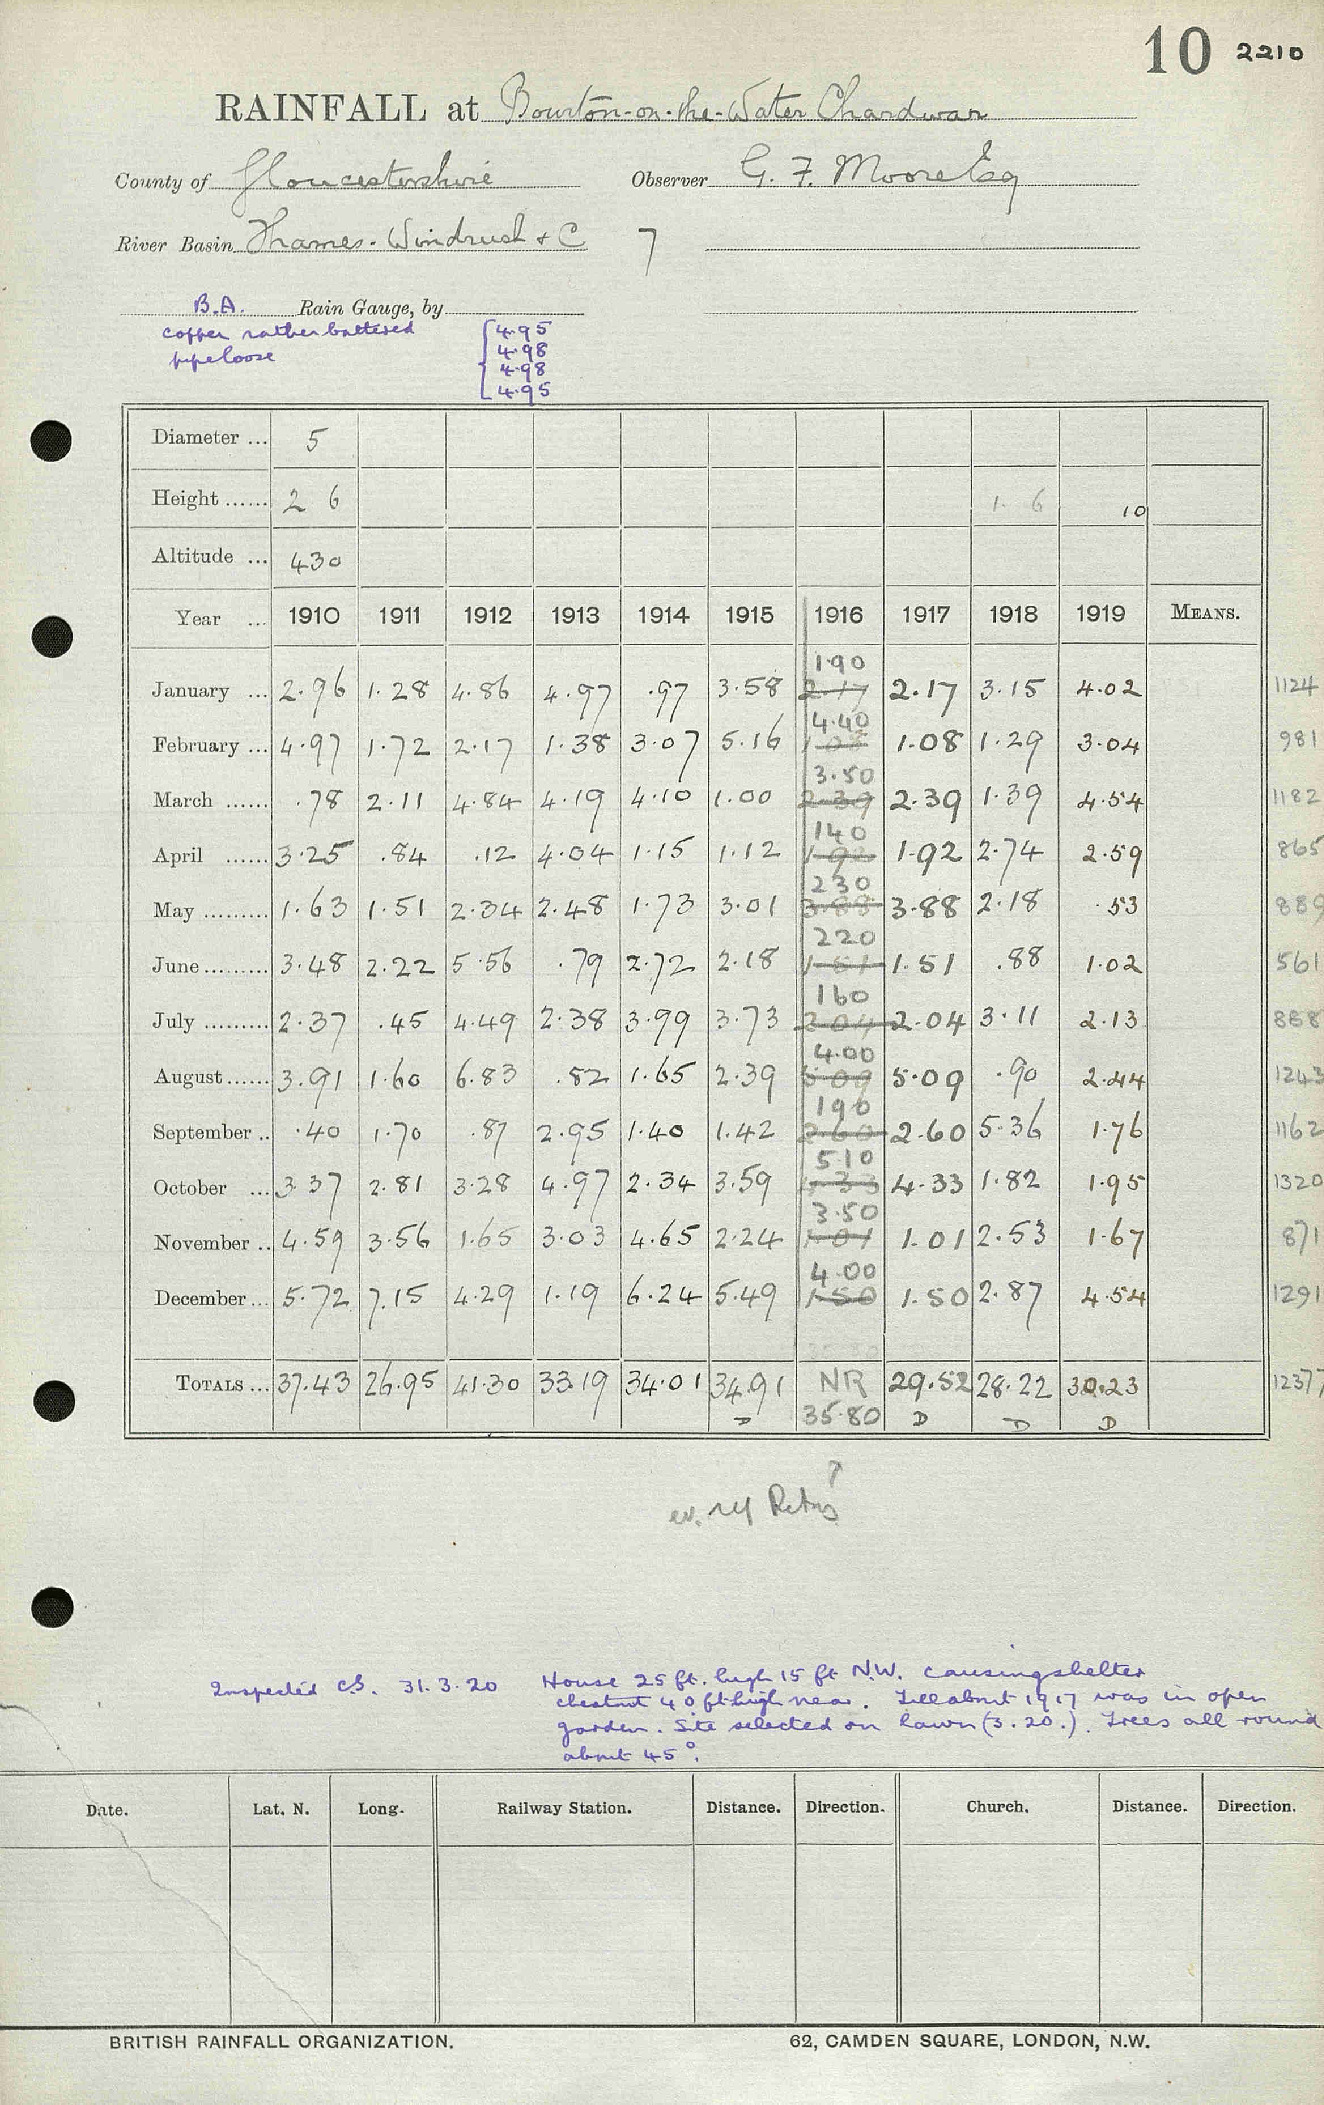 10 2210
RAINFALL at Bourton-on-the-Water Chardwar
County of Gloucestershire Observer G. F. Moore Esq
River Basin Thames. Windrush + C 7
B.A. Rain Gauge, by
copper rather battered 4.95
pipe loose 4.98
4.98
4.95
Diameter ... 5
Height ...... 2 6 1. 6 10
Altitude ... 430
Year ... 1910 1911 1912 1913 1914 1915 1916 1917 1918 1919 MEANS.
1.90
January ... 2.96 1.28 4.86 4.97 .97 3.58 2.17 2.17 3.15 4.02 1124
4.40
February ... 4.97 1.72 2.17 1.38 3.07 5.16 1.08 1.08 1.29 3.04 981
3.50
March ...... .78 2.11 4.84 4.19 4.10 1.00 2.39 2.39 1.39 4.54 1182
140
April ...... 3.25 .84 .12 4.04 1.15 1.12 1.92 1.92 2.74 2.59 865
230
May ......... 1.63 1.51 2.34 2.48 1.73 3.01 3.88 3.88 2.18 .53 889
220
June ......... 3.48 2.22 5.56 .79 2.72 2.18 1.51 1.51 .88 1.02 561
160
July ......... 2.37 .45 4.49 2.38 3.99 3.73 2.04 2.04 3.11 2.13 858
4.00
August ...... 3.91 1.60 6.83 .82 1.65 2.39 5.09 5.09 .90 2.44 1243
190
September .. .40 1.70 .87 2.95 1.40 1.42 2.60 2.60 5.36 1.76 1162
510
October ... 3.37 2.81 3.28 4.97 2.34 3.59 4.33 4.33 1.82 1.95 1320
3.50
November .. 4.59 3.56 1.65 3.03 4.65 2.24 1.01 1.01 2.53 1.67 871
4.00
December ... 5.72 7.15 4.29 1.19 6.24 5.49 1.50 1.50 2.87 4.54 1291
TOTALS ... 37.43 26.95 41.30 33.19 34.01 34.91 NR 29.52 28.22 30.23 12377
D 35.80 D D D
Inspected CS. 31.3.20 House 25 ft. high 15 ft N.W. causing shelter
chestnut 40 ft high near. Till about 1917 was in open
garden. Site selected on lawn (3.20.). Trees all round
about 45°.
Date. Lat. N. Long. Railway Station. Distance. Direction. Church. Distance. Direction.
BRITISH RAINFALL ORGANIZATION. 62, CAMDEN SQUARE, LONDON, N.W.